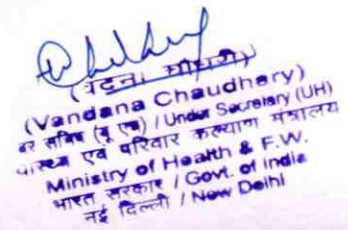 (वंदना चौधरी)
(Vandana Chaudhary)
सचिव (यू एच) / Under Secretary (UH)
एवं परिवार कल्याण मंत्रालय
Ministry of Health & F.W.
भारत सरकार / Govt. of India
नई दिल्ली / New Delhi